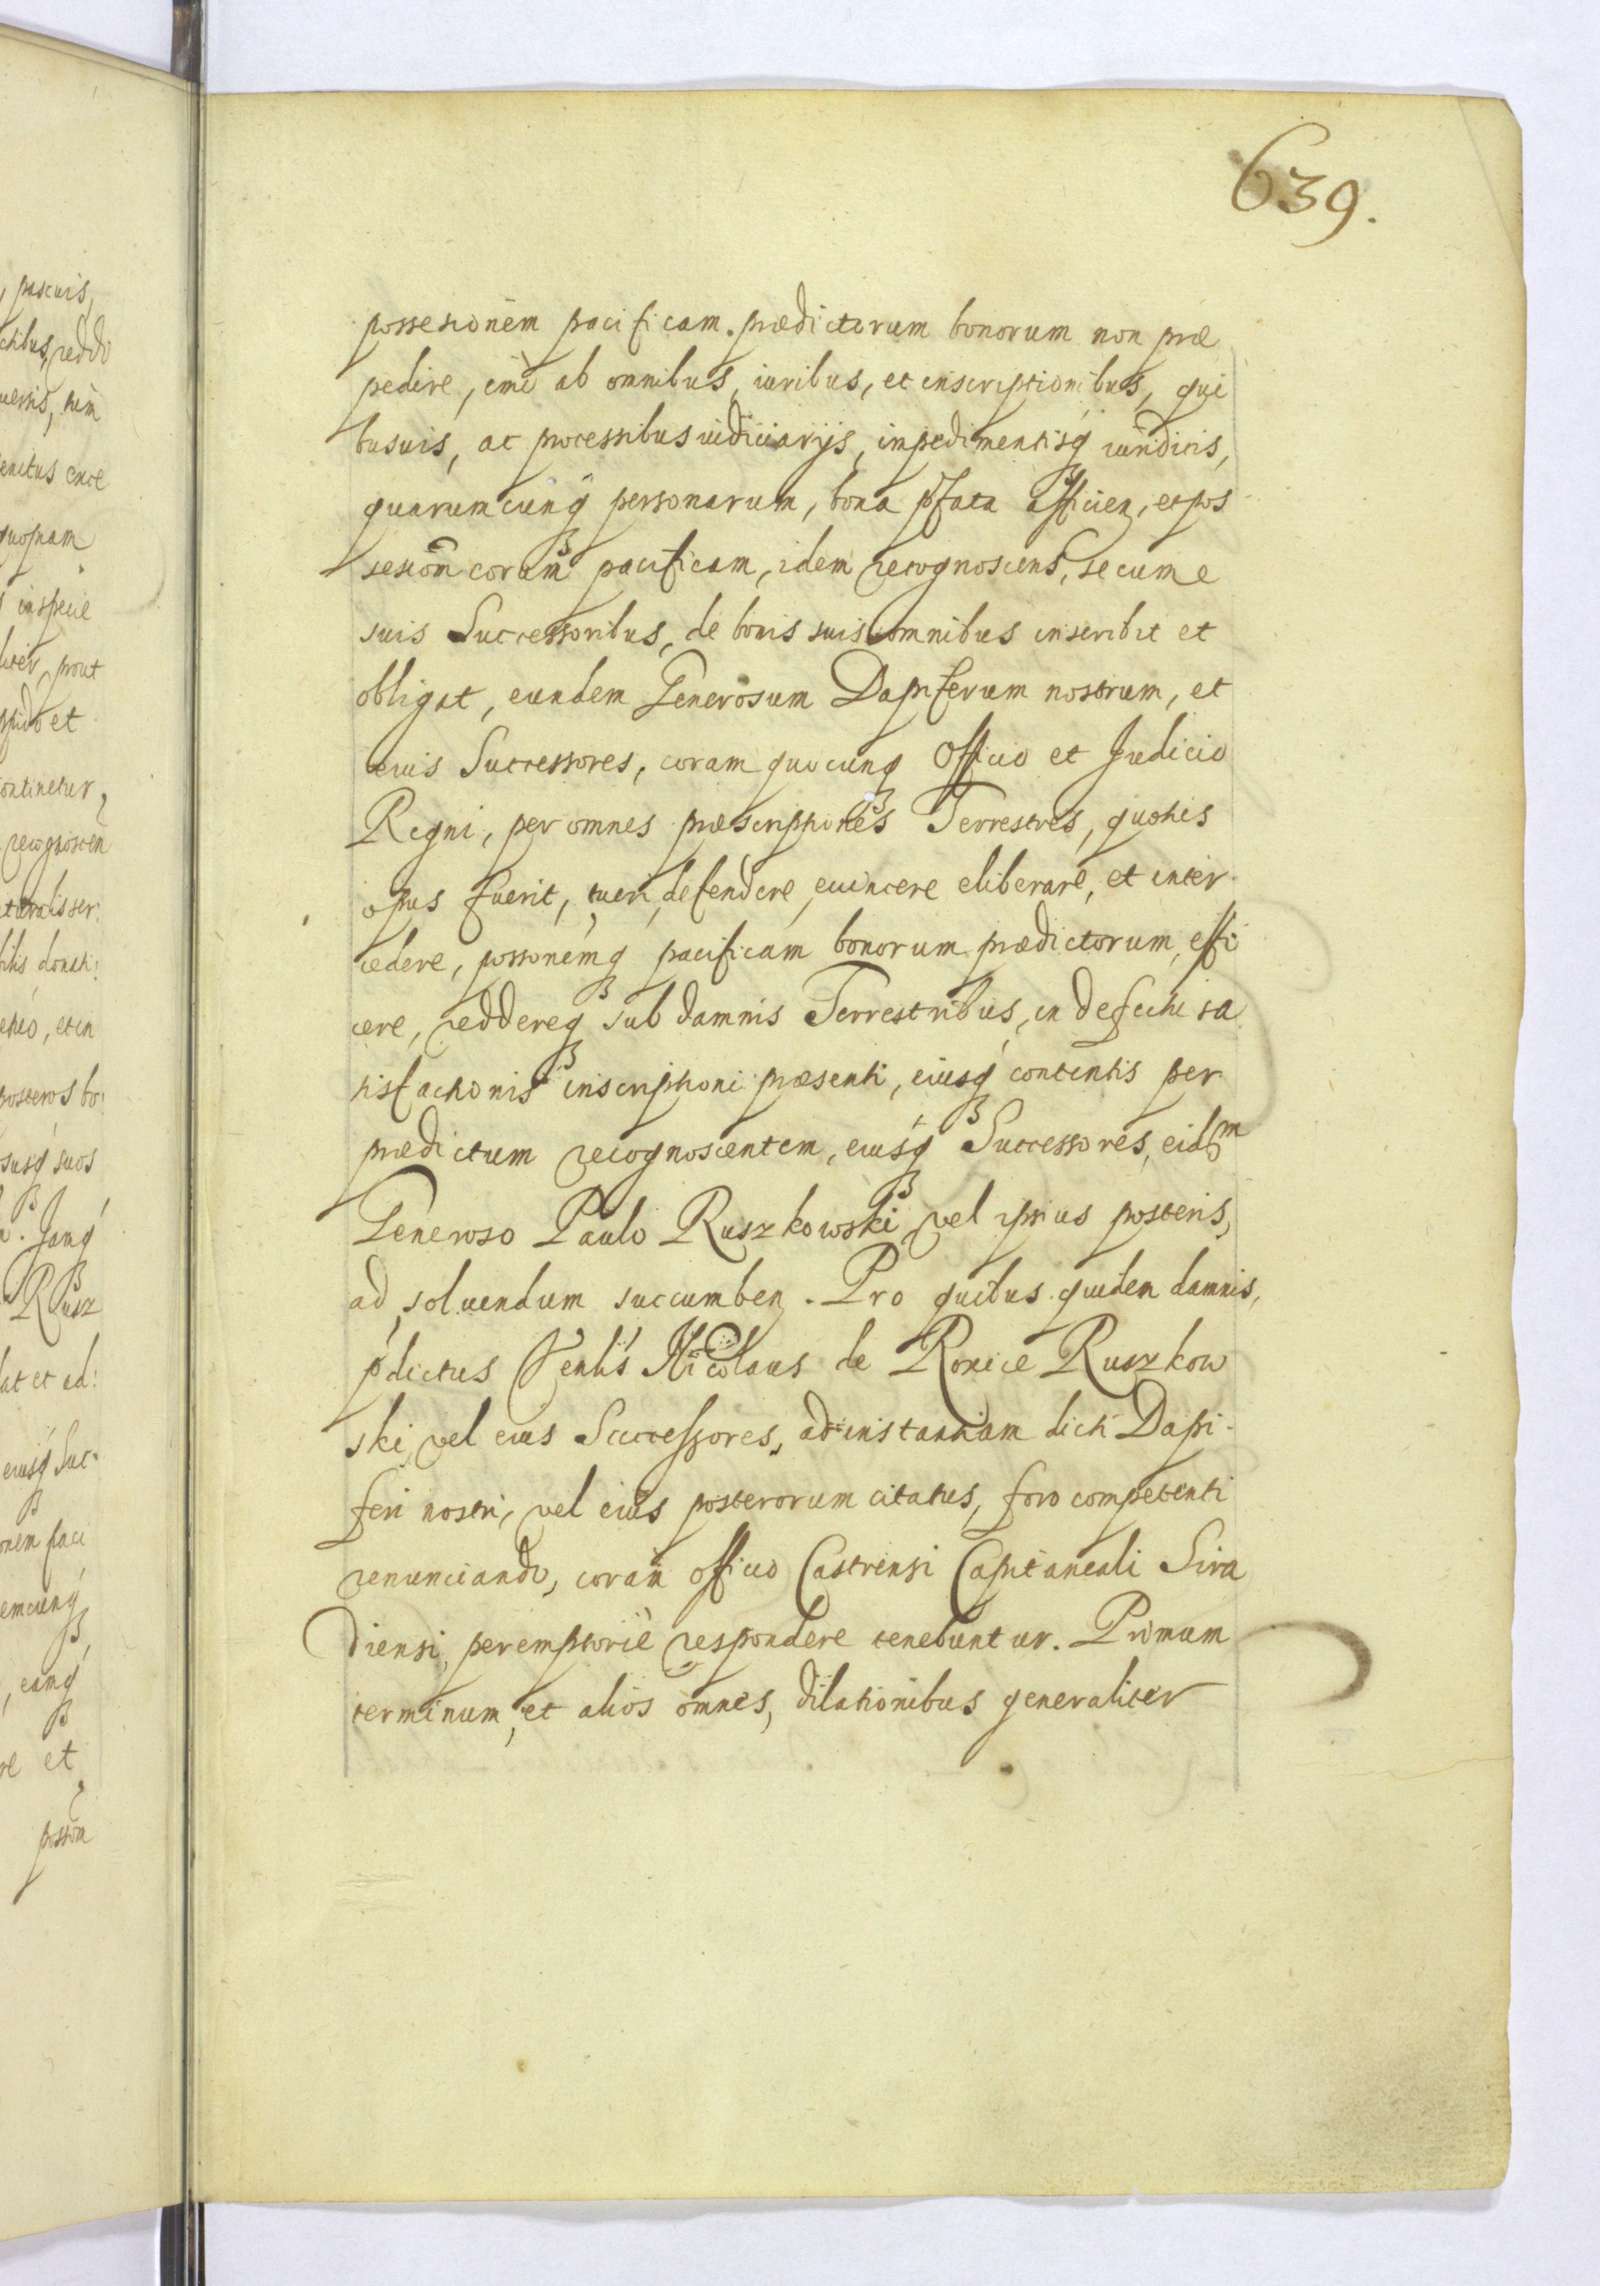 639.
possesionem pacificam prædictorum bonorum non præ
pedire, imo ab omnibus, iuribus, et inscriptionibus, qui
busuis, ac processibus iudiciarijs, impedimentisq iuridicis,
quarumcunq personarum, bona pfata afficien, et pos
sesiom eorum pacificam, idem recognoscens, se cum e
suis Successoribus, de bonis suis omnibus inscribit et
obligat, eundem Generosum Dapiferum nostrum, et
eius Successores, coram quocunq Officio et Judicio
Regni, per omnes præscriptiones Terrestres, quoties
opus fuerit, tueri, defendere, euincere eliberare, et inter
cedere, possonemq pacificam bonorum prædictorum, effi
cere, reddereq sub damnis Terrestribus, in defectu sa
tisfactionis inscriptioni præsenti, eiusq contentis per
prædictum recognoscentem, eiusq Successores, eidm
Generoso Paulo Ruszkowski vel ipsius posteris,
ad soluendum succumben. Pro quibus quidem damnis,
pdictus Genlis Nicolaus de Romice Ruszkow
ski, vel eius Successores, ad instantiam dicti Dapi-
feri nostri, vel eius posterorum citatus, foro competenti
renunciando, coram officio Castrensi Capitaneali Sira
diensi, peremptorie respondere tenebuntur. Primum
terminum, et alios omnes, dilationibus generaliter
pascuis,
reddi
tenitus
inspecie
prout
et
continetur,
recognoscen
donati
et in
posteros bo:
suos
Janq
Rusz
et ad:
eiusq Suc-
onem paci
eamq
et
possom